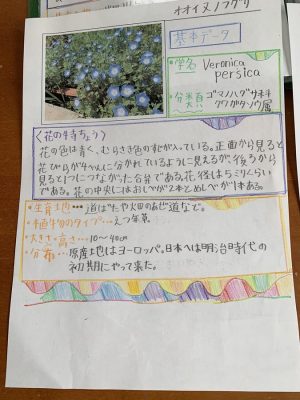 オオイヌノフグリ
基本データ
学名
Veronica
persica
分類
ゴマノハグサ科
クワガタソウ属
〈花の特ちょう〉
花の色は青く、むらさき色のすじが入っている。正面から見ると
花びらが4まいに分かれているように見えるが、後ろから
見ると1つにつながった合弁である。花後は5ミリくらい
である。花の中央にはおしべが2本とめしべが1本ある。
・生育地…道ばたや火田のあぜ道など。
・植物のタイプ…えつ年草
・大きさ・高さ…10〜40cm
・分布…原産地はヨーロッパ。日本へは明治時代の
初期にやって来た。